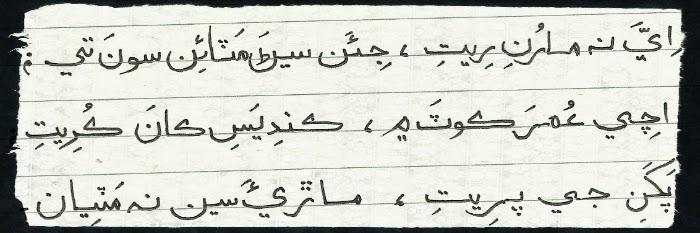 اِيَّ نه مارُنِ رِيتِ ، جِئَن سيڻَ مَٽائِن سونَ تي ؛
اَچِي عُمرَ ڪوٽَ ۾ ، ڪندِيَسِ ڪانَ ڪُرِيتِ
پَکَنِ جي پرِيتِ ، ماڙيءَ سين نه مَٽِيان .